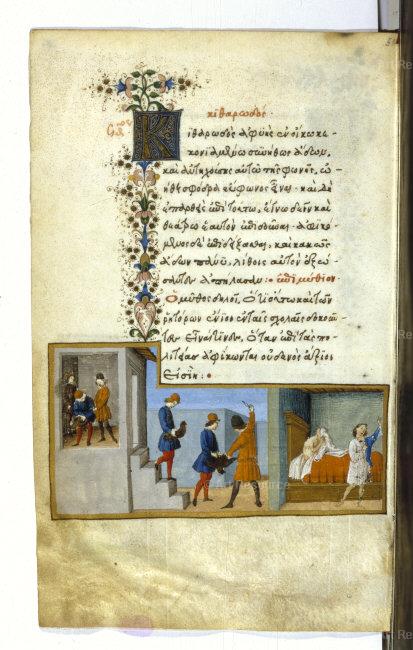 κιθαρωδός.
Κιθαρωδὸς ἀφυὴς ἐν οἴκω κεκα-
κονιαμένω συνήθως ἄδων,
καὶ ἀντηχούσης αὐτῶ τῆς φωνῆς, ὠ-
ήθη σφόδρα εὔφωνος εἶναι. καὶ δὴ
ἐπαρθεὶς ἐπὶ τούτω, ἔγνω δεῖν καὶ
θεάτρω ἑαυτὸν ἐπιδοῦναι. ἀφικό-
μενος δὲ ἐπιδείξασθαι, καὶ κακῶς
ἄδων πάνυ, λίθοις αὐτὸν ἐξώ-
σαντες ἀπήλασαν: ἐπιμύθιον
Ὁ μῦθος δηλοῖ, ὅτι οὕτω καὶ τῶν
ῥητόρων ἔνιοι ἐν ταῖς σχολαῖς δοκοῦν-
τες εἶναί τινες, ὅταν ἐπὶ τὰς πο-
λιτείας ἀφίκωνται οὐδενὸς ἄξιοι
εἰσίν: